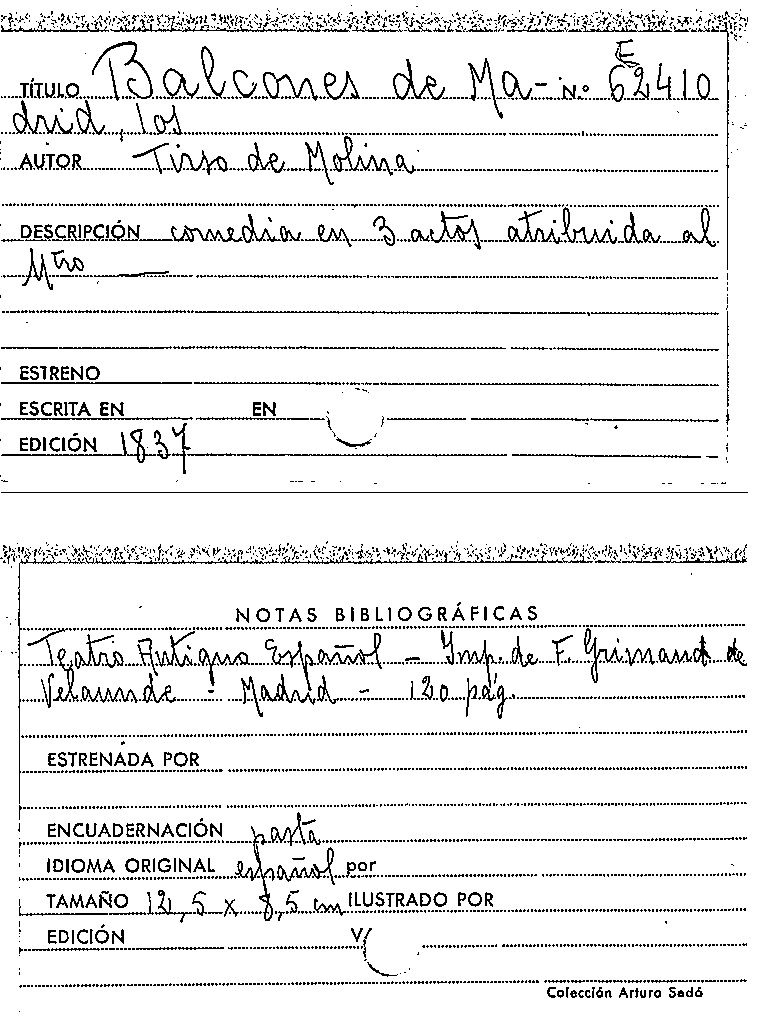 E
TÍTULO Balcones de Ma- N.º 62410
drid, los
AUTOR Tirso de Molina
DESCRIPCIÓN comedia en 3 actos atribuida al
Mtro ___
ESTRENO
ESCRITA EN EN
EDICIÓN 1837
NOTAS BIBLIOGRÁFICAS
Teatro Antiguo Español - Imp. de F. Grimaud de
Velaunde - Madrid - 120 pág.
ESTRENADA POR
ENCUADERNACIÓN pasta
IDIOMA ORIGINAL español por
TAMAÑO 12,5 x 8,5 cm ILUSTRADO POR
EDICIÓN V/
Colección Arturo Sedó